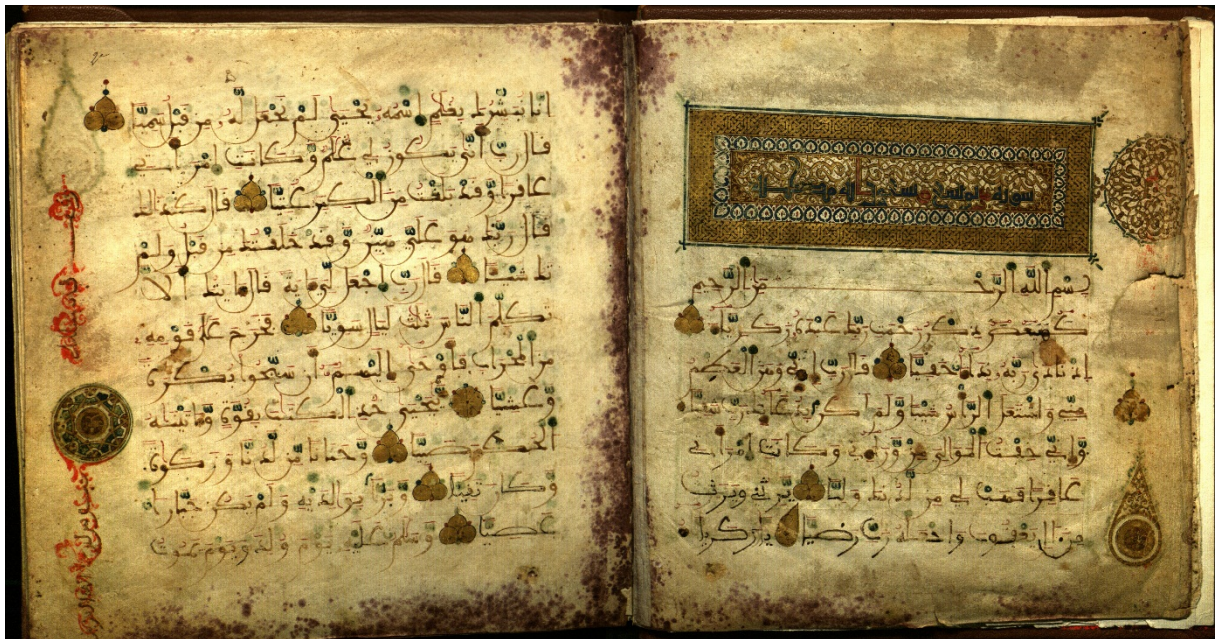 بسم الله الرحمن الرحيم
كهيعص ذكر رحمت ربك عبده زكرياء
اذ نادى ربه نداء خفيا قال رب اني وهن العظم
مني واشتعل الراس شيبا ولم اكن بدعائك رب شقيا
واني خفت الموالي من وراءي وكانت امراتي
عاقرا فهب لي من لدنك وليا يرثني ويرث
من ال يعقوب واجعله رب رضيا يزكرياء
انا نبشرك بغلم اسمه يحيى لم نجعل له من قبل سميا
قال رب انى يكون لي غلم وكانت امراتي
عاقرا وقد بلغت من الكبر عتيا قال كذلك
قال ربك هو علي هين وقد خلقتك من قبل ولم
تك شيئا قال رب اجعل لي اية قال ايتك الا
تكلم الناس ثلث ليال سويا فخرج على قومه
من المحراب فاوحى اليهم ان سبحوا بكرة
وعشيا ييحيى خذ الكتب بقوة واتينه
الحكم صبيا وحنانا من لدنا وزكوة
وكان تقيا وبرا بولديه ولم يكن جبارا
عصيا وسلم عليه يوم ولد ويوم يموت